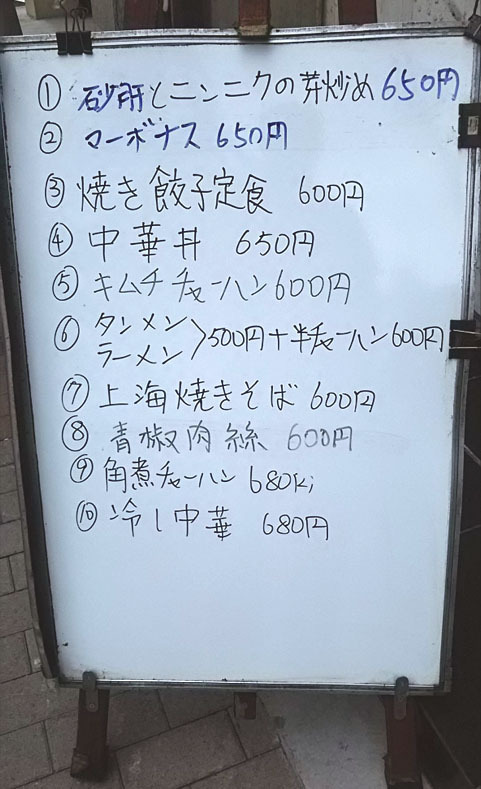 ① 砂肝とニンニクの芽炒め 650円
② マーボナス 650円
③ 焼き餃子定食 600円
④ 中華丼 650円
⑤ キムチチャーハン 600円
⑥ タンメン
ラーメン 〉500円+半チャーハン 600円
⑦ 上海焼きそば 600円
⑧ 青椒肉絲 600円
⑨ 角煮チャーハン 680Ki
⑩ 冷し中華 680円